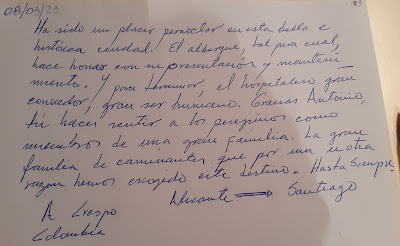 08/03/23
Ha sido un placer pernoctar en esta bella e
histórica ciudad. El albergue, tal para cual,
hace honor con su presentación y manteni
miento. Y para terminar, el hospitalero gran
conocedor, gran ser humano. Gracias Antonio,
tú haces sentir a los peregrinos como
miembros de una gran familia. La gran
familia de caminantes que por una u otra
razón hemos escogido este destino. Hasta Siempre
Alicante ⟹ Santiago
A Crespo
Colombia